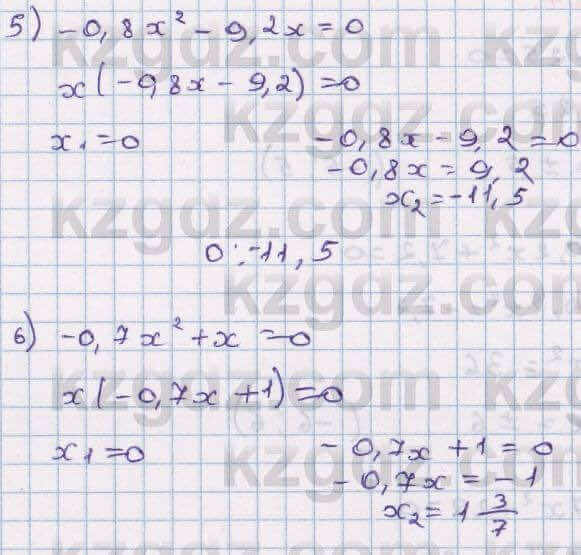 5) -0,8x² - 9,2x = 0
x(-0,8x - 9,2) = 0
x₁ = 0 -0,8x - 9,2 = 0
-0,8x = 9,2
x₂ = -11,5
0; -11,5
6) -0,7x² + x = 0
x(-0,7x + 1) = 0
x₁ = 0 -0,7x + 1 = 0
-0,7x = -1
x₂ = 1 3/7
kzgdz.com